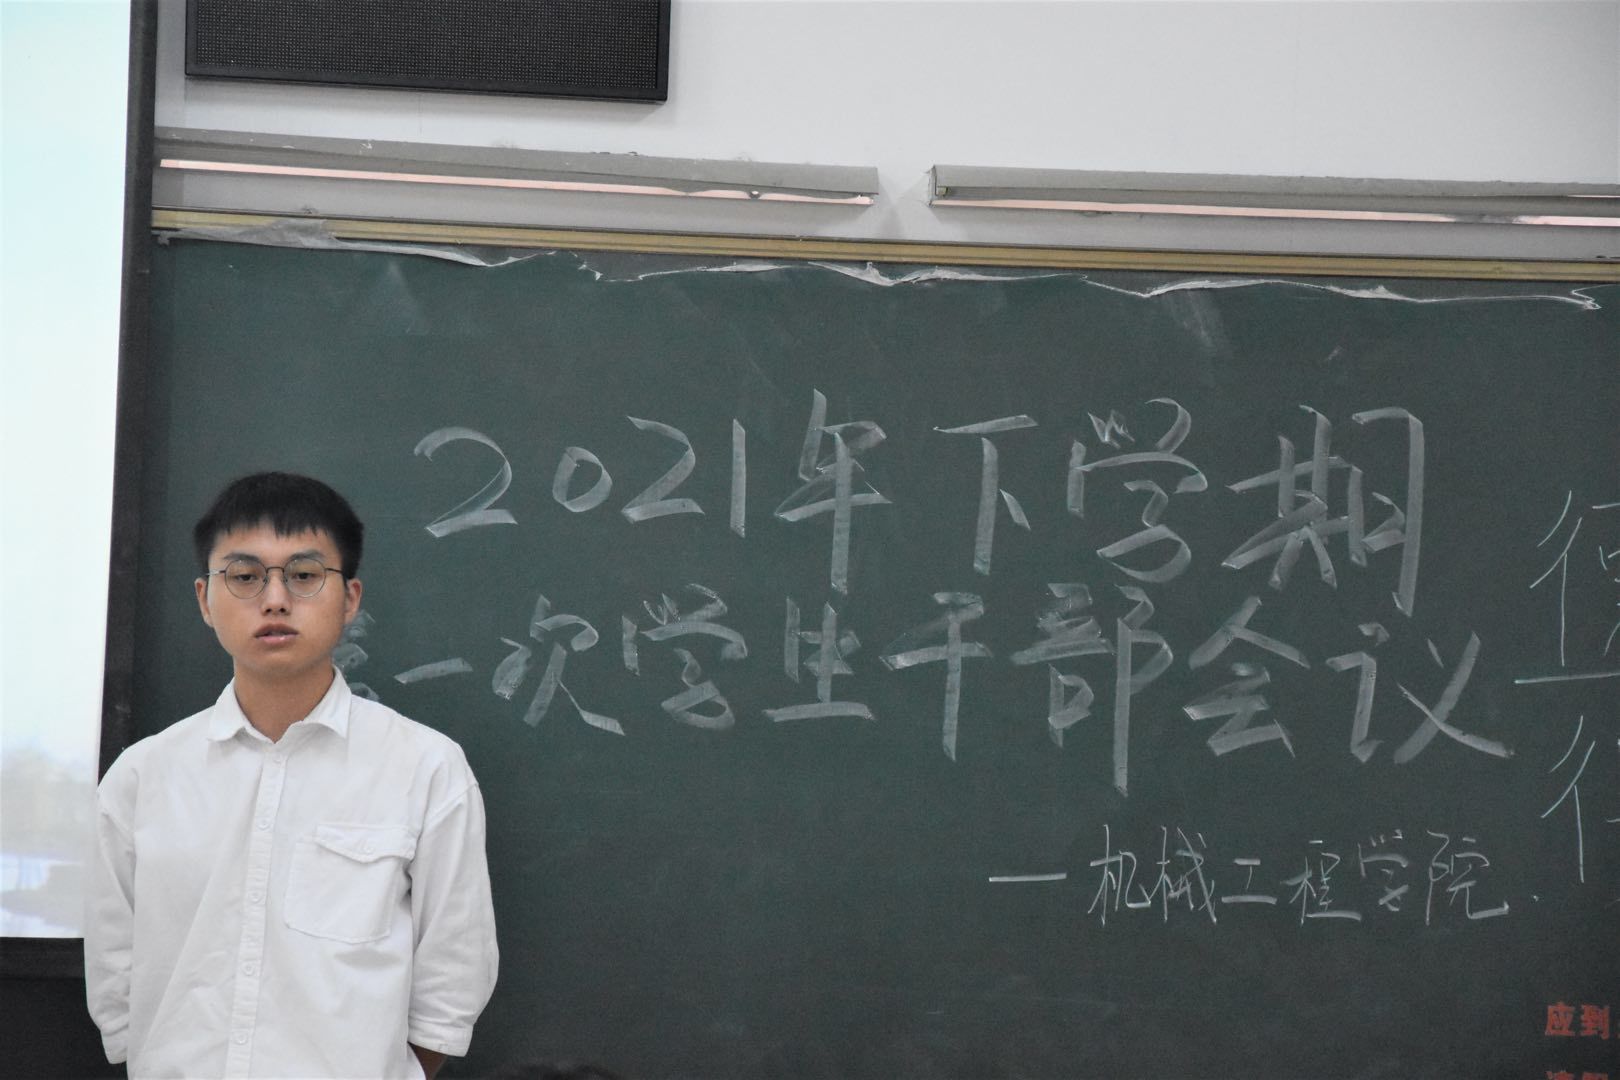 2021年下学期
第一次学生干部会议
—机械工程学院.
应到